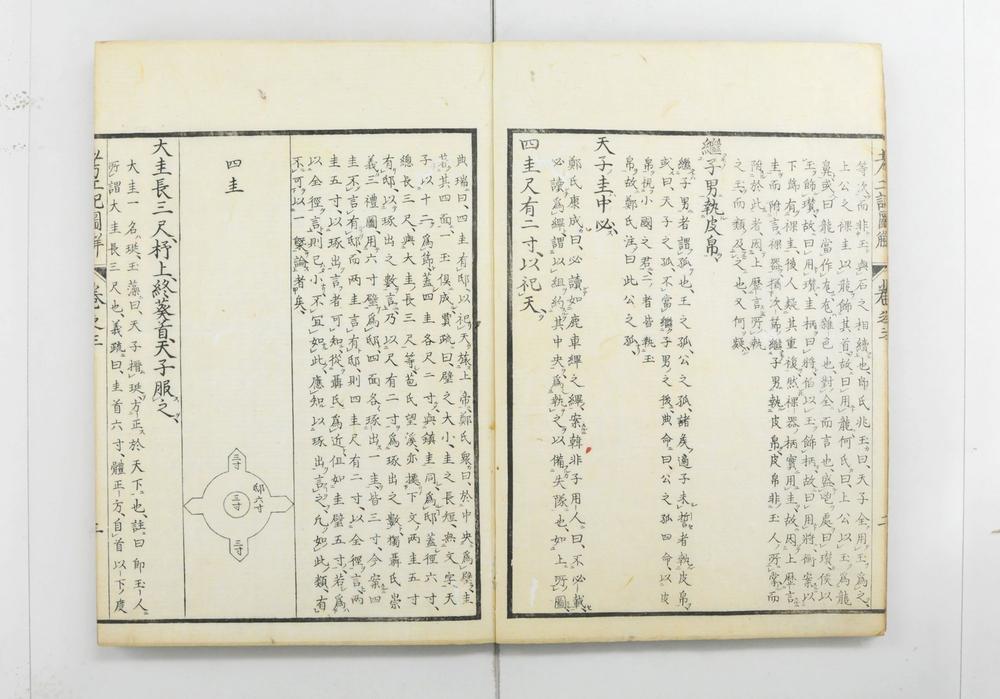 等次、而非玉與石之相續也、郎氏兆玉曰、天子全用玉爲之、
上公之祼圭以龍飾其首、故曰用龍、何氏曰上公以玉爲龍
鼻、或曰龍當作尨、尨雜色也、對全而言也、盛鬯處曰瓚、侯以
玉飾瓚、故曰用瓚、圭柄曰將、伯以玉飾柄、故曰用將、衡案以
下飾有祼圭、後人疑其重複、然祼器柄實用圭、故因上歷言
圭而附言祼器、猶次節繼子男執皮帛、皮帛非玉人所掌、而
陪於此者、因上歷言所執
之玉、而類及之也、又何疑
繼子男執皮帛、
繼子男者謂孤也、王之孤、公之孤、諸矦適子未誓者執皮帛、
或曰天子之孤不當繼子男之後、典命曰、公之孤四命、以皮
帛視小國之君、二者皆執玉
帛、故鄭氏注曰此公之孤
天子圭中必
鄭氏康成曰、必讀如鹿車縪之縪、案韓非子用人曰、不必載
必讀爲縪、謂以組約其中央、爲執之以備失隊也、如上所圖
四圭尺有二寸、以祀天、
典瑞曰、四圭有邸、以祀天旅上帝、鄭氏衆曰、於中央爲璧、圭
著其四面、一玉俱成、賈疏曰、璧之大小、圭之長短、無文字、天
子以十二爲節、蓋四圭各尺二寸、與鎮圭同、爲邸蓋徑六寸、
總長三尺、與大圭長三尺等、芭氏望溪亦據下文、兩圭五寸
有邸、以琢出之數言、乃以尺有二寸爲琢出之數、獨聶氏崇
義三禮圖用六寸璧爲邸、四面各琢出一圭、皆三寸、今案四
圭不言有邸而兩圭言有邸、則四圭尺有二寸、以全徑言、兩
圭五寸、以琢出言者可知、從聶氏爲近、但如圭璧五寸、若爲
以全徑言、則已小、不宜如此、應知以琢出言之、凡如此類、有
不可以一槩論者矣、
四圭
三寸
邸六寸
三寸
三寸
大圭長三尺、杼上終葵首、天子服之、
大圭一名珽、玉藻曰、天子搢珽、方正於天下也、註曰即玉人
所謂大圭長三尺也、義疏曰、圭首六寸、體正方、自首以下度